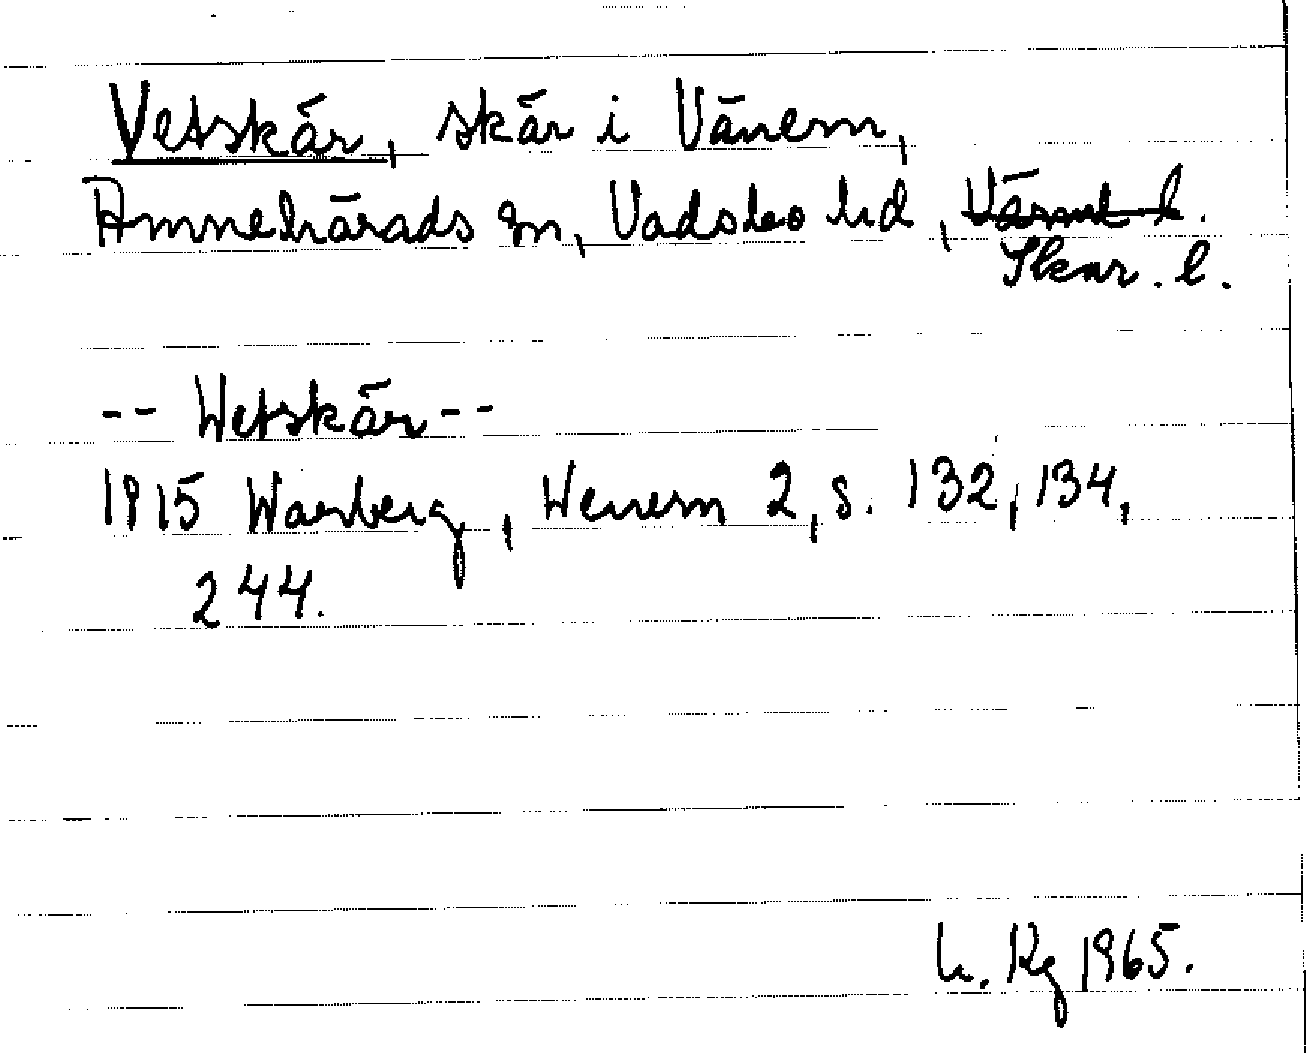 Vetskär, skär i Vänern,
Amnehärads sn, Vadsbo hd, Värml l.
Skar. l.
-- Wetskär --
1815 Warberg, Wenern 2, s. 132, 134,
244.
L. Kg 1965.